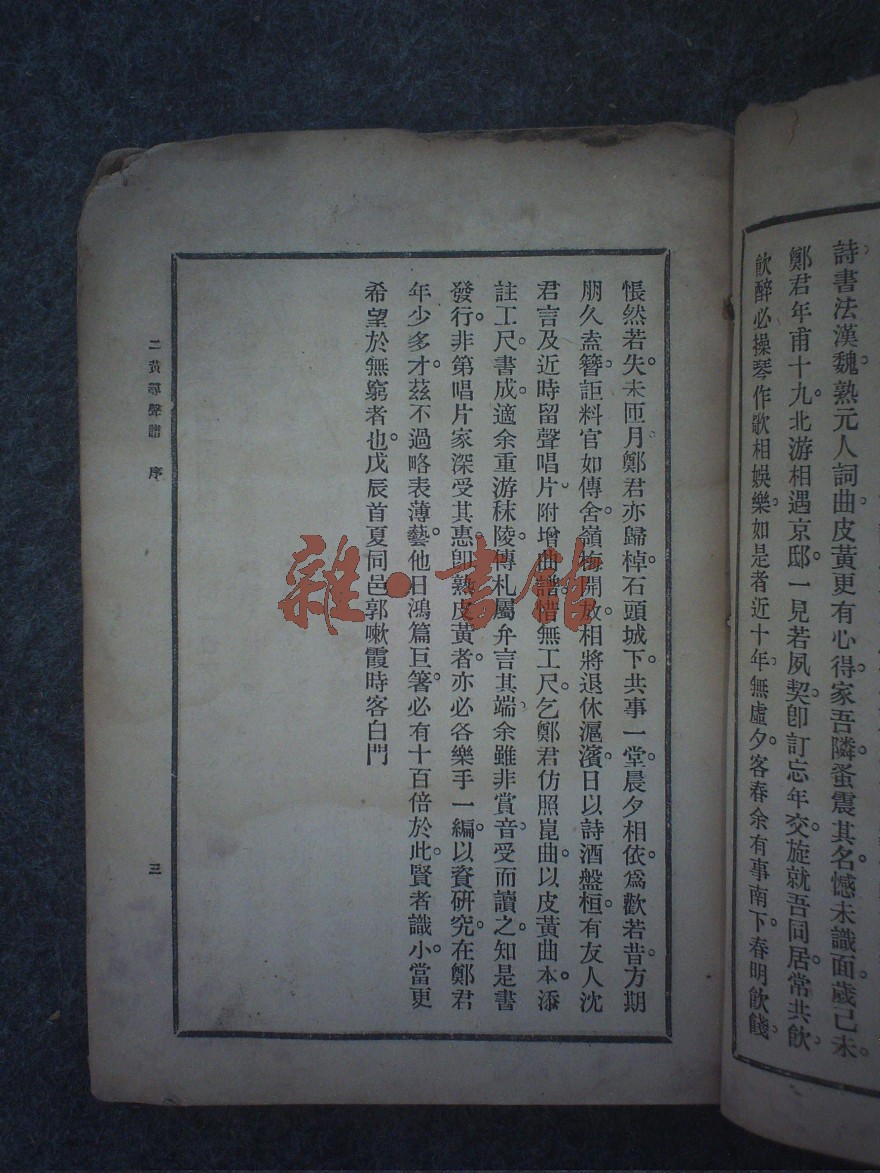 詩書法漢魏熟元人詞曲皮黃更有心得家吾隣蚤震其名憾未識面歲己未
鄭君年甫十九北游相遇京邸一見若夙契卽訂忘年交旋就吾同居常共飲
飲醉必操琴作歌相娛樂如是者近十年無虛夕客春余有事南下春明飲餞
悵然若失未匝月鄭君亦歸棹石頭城下共事一堂晨夕相依爲歡若昔方期
朋久盍簪詎料官如傳舍嶺梅開放相將退休滬濱日以詩酒盤桓有友人沈
君言及近時留聲唱片附增曲譜惜無工尺乞鄭君仿照崑曲以皮黃曲本添
註工尺書成適余重游秣陵傳札屬弁言其端余雖非賞音受而讀之知是書
發行非第唱片家深受其惠卽熟皮黃者亦必各樂手一編以資硏究在鄭君
年少多才茲不過略表薄藝他日鴻篇巨箸必有十百倍於此賢者識小當更
希望於無窮者也戊辰首夏同邑郭嗽霞時客白門
二黃尋聲譜 序
三
雜·書館